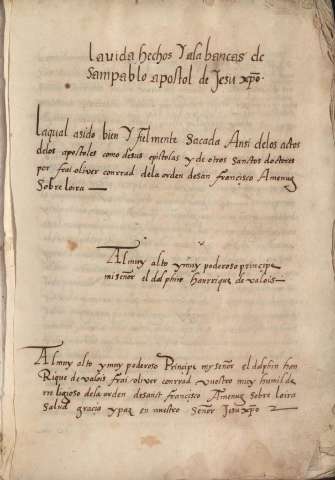 la vida hechos Y ala bancas de
sampablo apostol de Jesu xpo.
Laqual asido bien Y fielmente sacada Ansi delos actos
delos apostoles como desus epistolas y de otros sanctos doctores
por frai oliver conrrad dela orden desan francisco Amenug
sobre loira
Al muy alto y muy poderoso principe
mi señor el dolphin hanrrique de valois
Al muy alto y muy poderoso Principe my señor el dolphin han
Rique de valois frai oliver conrrad vuestro muy humil de
religioso dela orden desanct francisco Amenug sobre loira
salud gracia y paz en nuestro Señor Jesu xpo